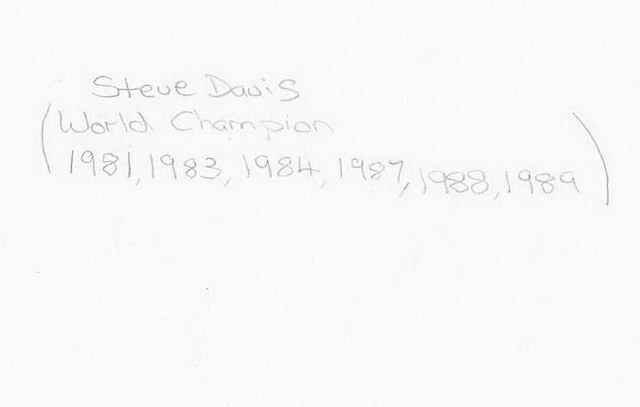 Steve Davis
(World Champion
1981, 1983, 1984, 1987, 1988, 1989)